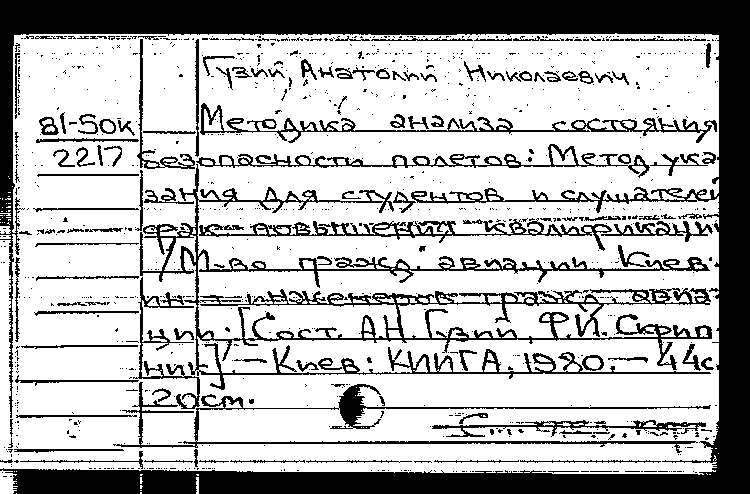 1
Гузий, Анатолий Николаевич.
81-50к
2217
Методика анализа состояния
безопасности полетов: Метод. ука-
зания для студентов и слушателей
фак повышения квалификации
/М-во гражд. авиации, Киев.
ин-т инженеров гражд. авиа-
ции; [Сост. А.Н. Гузий, Ф.И. Скрип-
ник]. — Киев: КИИГА, 1980. — 44с.
20см.
См. след. карт.